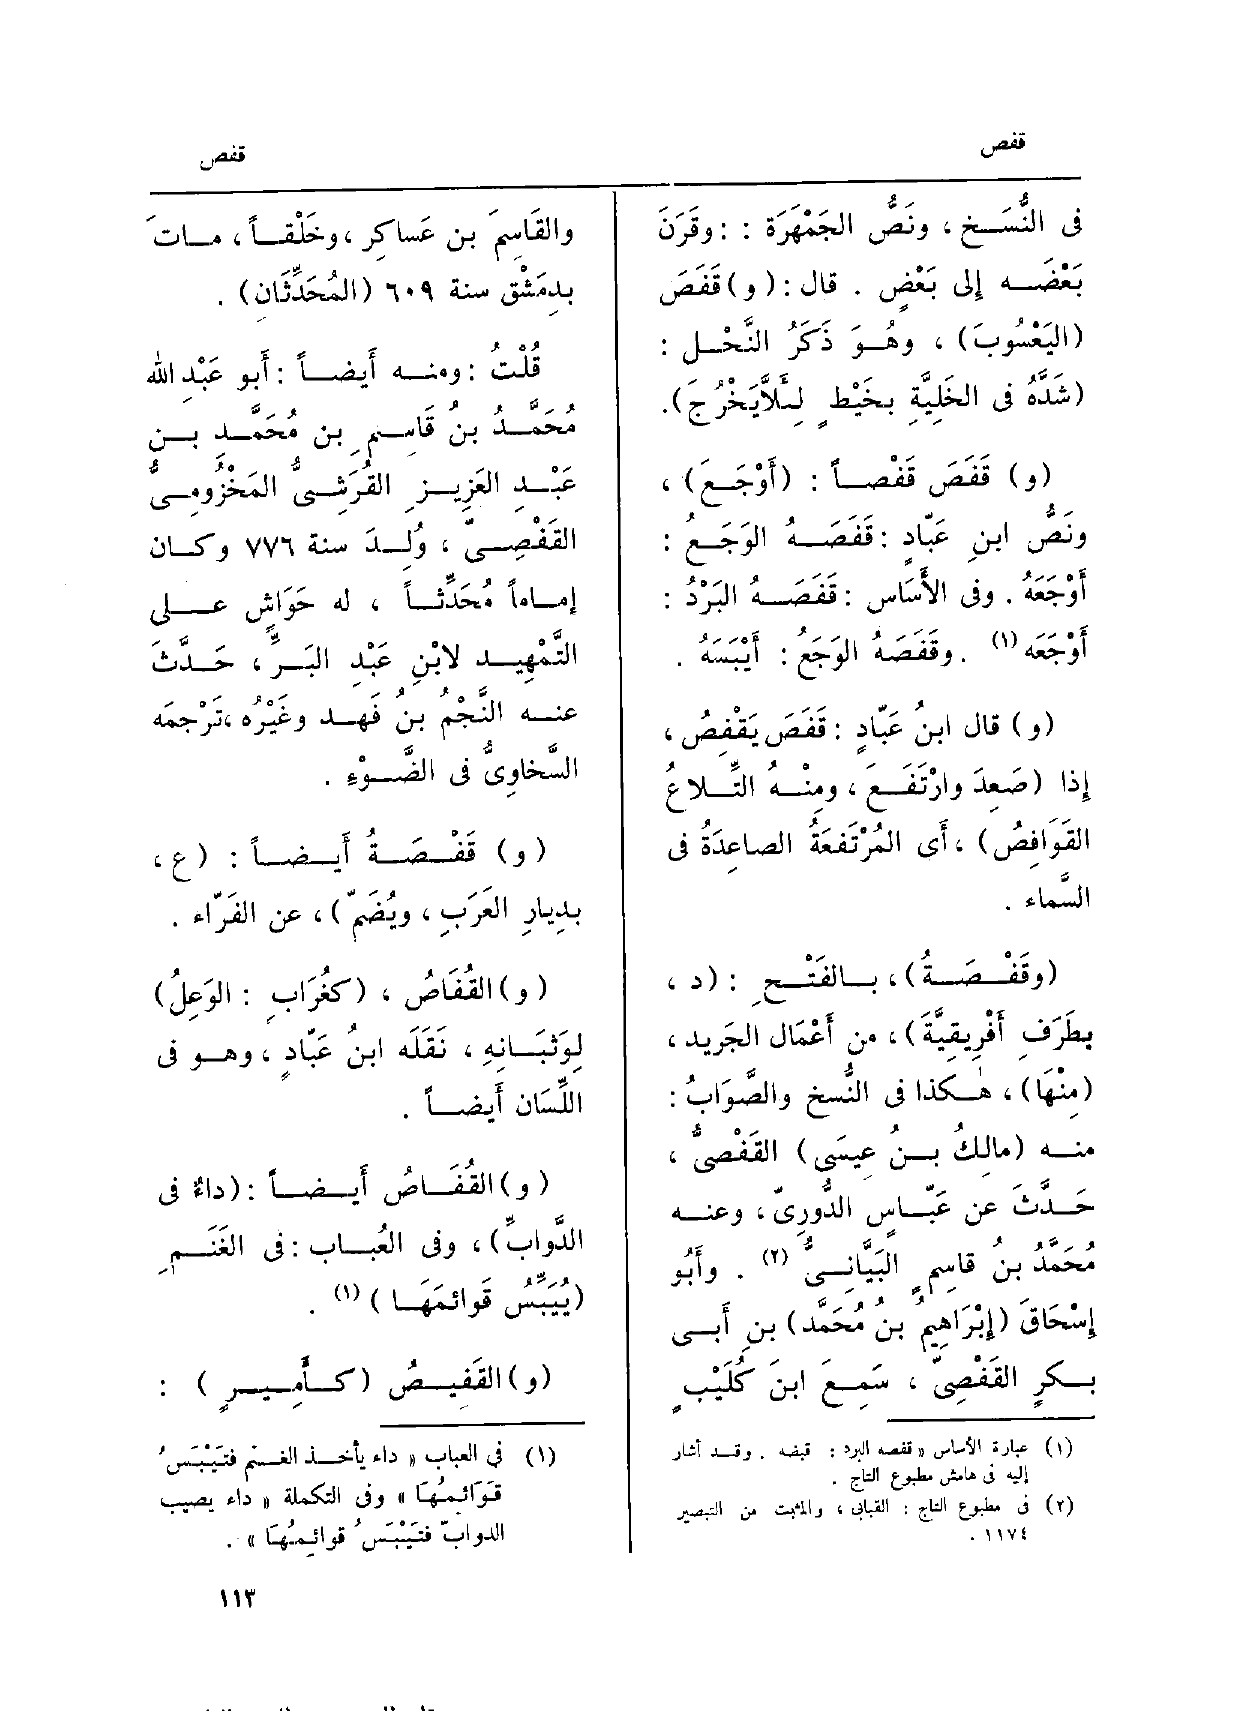 قفص
قفص
فى النُّسَخِ ، ونَصُّ الجَمْهَرَة : : وقَرَنَ
بَعْضَه إلى بَعْضٍ . قال : ( و ) قَفَصَ
(اليَعْسُوبَ) ، وهُوَ ذَكَرُ النَّحْلِ :
(شَدَّهُ فى الخَلِيَّةِ بخَيْطٍ لِئَلاَّ يَخْرُجَ).
(و) قَفَصَ قَفْصاً : (أَوْجَعَ) ،
ونَصُّ ابنِ عَبّادٍ : قَفَصَهُ الوَجَعُ :
أَوْجَعَهُ . وفى الأَسَاس : قَفَصَهُ البَرْدُ :
أَوْجَعَه (١) . وقَفَصَهُ الوَجَعُ : أَيْبَسَهُ .
(و) قال ابنُ عَبّادٍ : قَفَصَ يَقْفِصُ ،
إذا (صَعِدَ وارْتَفَعَ ، ومِنْهُ التِّلاعُ
القَوَافِصُ) ، أى المُرْتَفِعَةُ الصاعِدَةُ فى
السَّماء .
(وقَفْصَةُ) ، بالفَتْحِ : (د ،
بِطَرَفِ أَفْرِيقِيَّةَ) ، من أَعْمَال الجَرِيد ،
(مِنْهَا) ، هٰكذا فى النُّسخ والصَّوَابُ :
منه (مالِكُ بنُ عيسَى) القَفْصِىُّ ،
حَدَّثَ عن عَبّاسٍ الدُّورِىّ ، وعنه
مُحَمَّدُ بنُ قاسِمٍ البَيَّانِىُّ (٢) . وأَبُو
إِسْحَاقَ (إِبْرَاهِيمُ بنُ مُحَمَّد) بنِ أَبى
بكرٍ القَفْصِىّ ، سَمِعَ ابنَ كُلَيْبٍ
(١) عبارة الأساس « قفصه البرد : قبضه . وقد أشار
إليه فى هامش مطبوع التاج .
(٢) فى مطبوع التاج : القبانى ، والمثبت من التبصير
١١٧٤ .
والقَاسِمَ بن عَساكِر ، وخَلْقاً ، مات
بدِمَشْق سنة ٦٠٩ (المُحَدِّثَانِ) .
قُلْتُ : ومنه أَيضاً : أَبو عَبْدِ الله
مُحَمَّدُ بنُ قَاسِمِ بن مُحَمَّدِ بنِ
عَبْدِ العَزِيزِ القُرَشِىُّ المَخْزُومِىُّ
القَفْصِىّ ، وُلِدَ سنة ٧٧٦ وكان
إماماً مُحَدِّثاً ، له حَوَاشٍ على
التَّمْهِيدِ لابْنِ عَبْدِ البَرِّ ، حَدَّثَ
عنه النَّجْمُ بنُ فَهْد وغَيْرُه ، تَرْجمَه
السَّخاوِىُّ فى الضَّوْءِ .
(و) قَفْصَةُ أَيضاً : (ع ،
بدِيارِ العَرَبِ ، ويُضَمّ) ، عن الفَرّاء .
(و) القُفَاصُ ، (كغُرَابٍ : الوَعِلُ)
لِوَثَبَانِهِ ، نَقَلَه ابنُ عَبّادٍ ، وهو فى
اللِّسَان أَيضاً .
(و) القُفَاصُ أَيضاً : (داءٌ فى
الدَّوابِّ) ، وفى العُبَاب : فى الغَنَمِ
(يُيَبِّسُ قَوائِمَهَا) (١) .
(و) القَفِيصُ (كأَمِيرٍ) :
(١) في العباب « داء يأخذ الغنم فتَيْبَسُ
قوائمُها » وفى التكملة « داء يصيب
الدوابّ فتَيْبَسُ قوائِمُهَا » .
١١٣